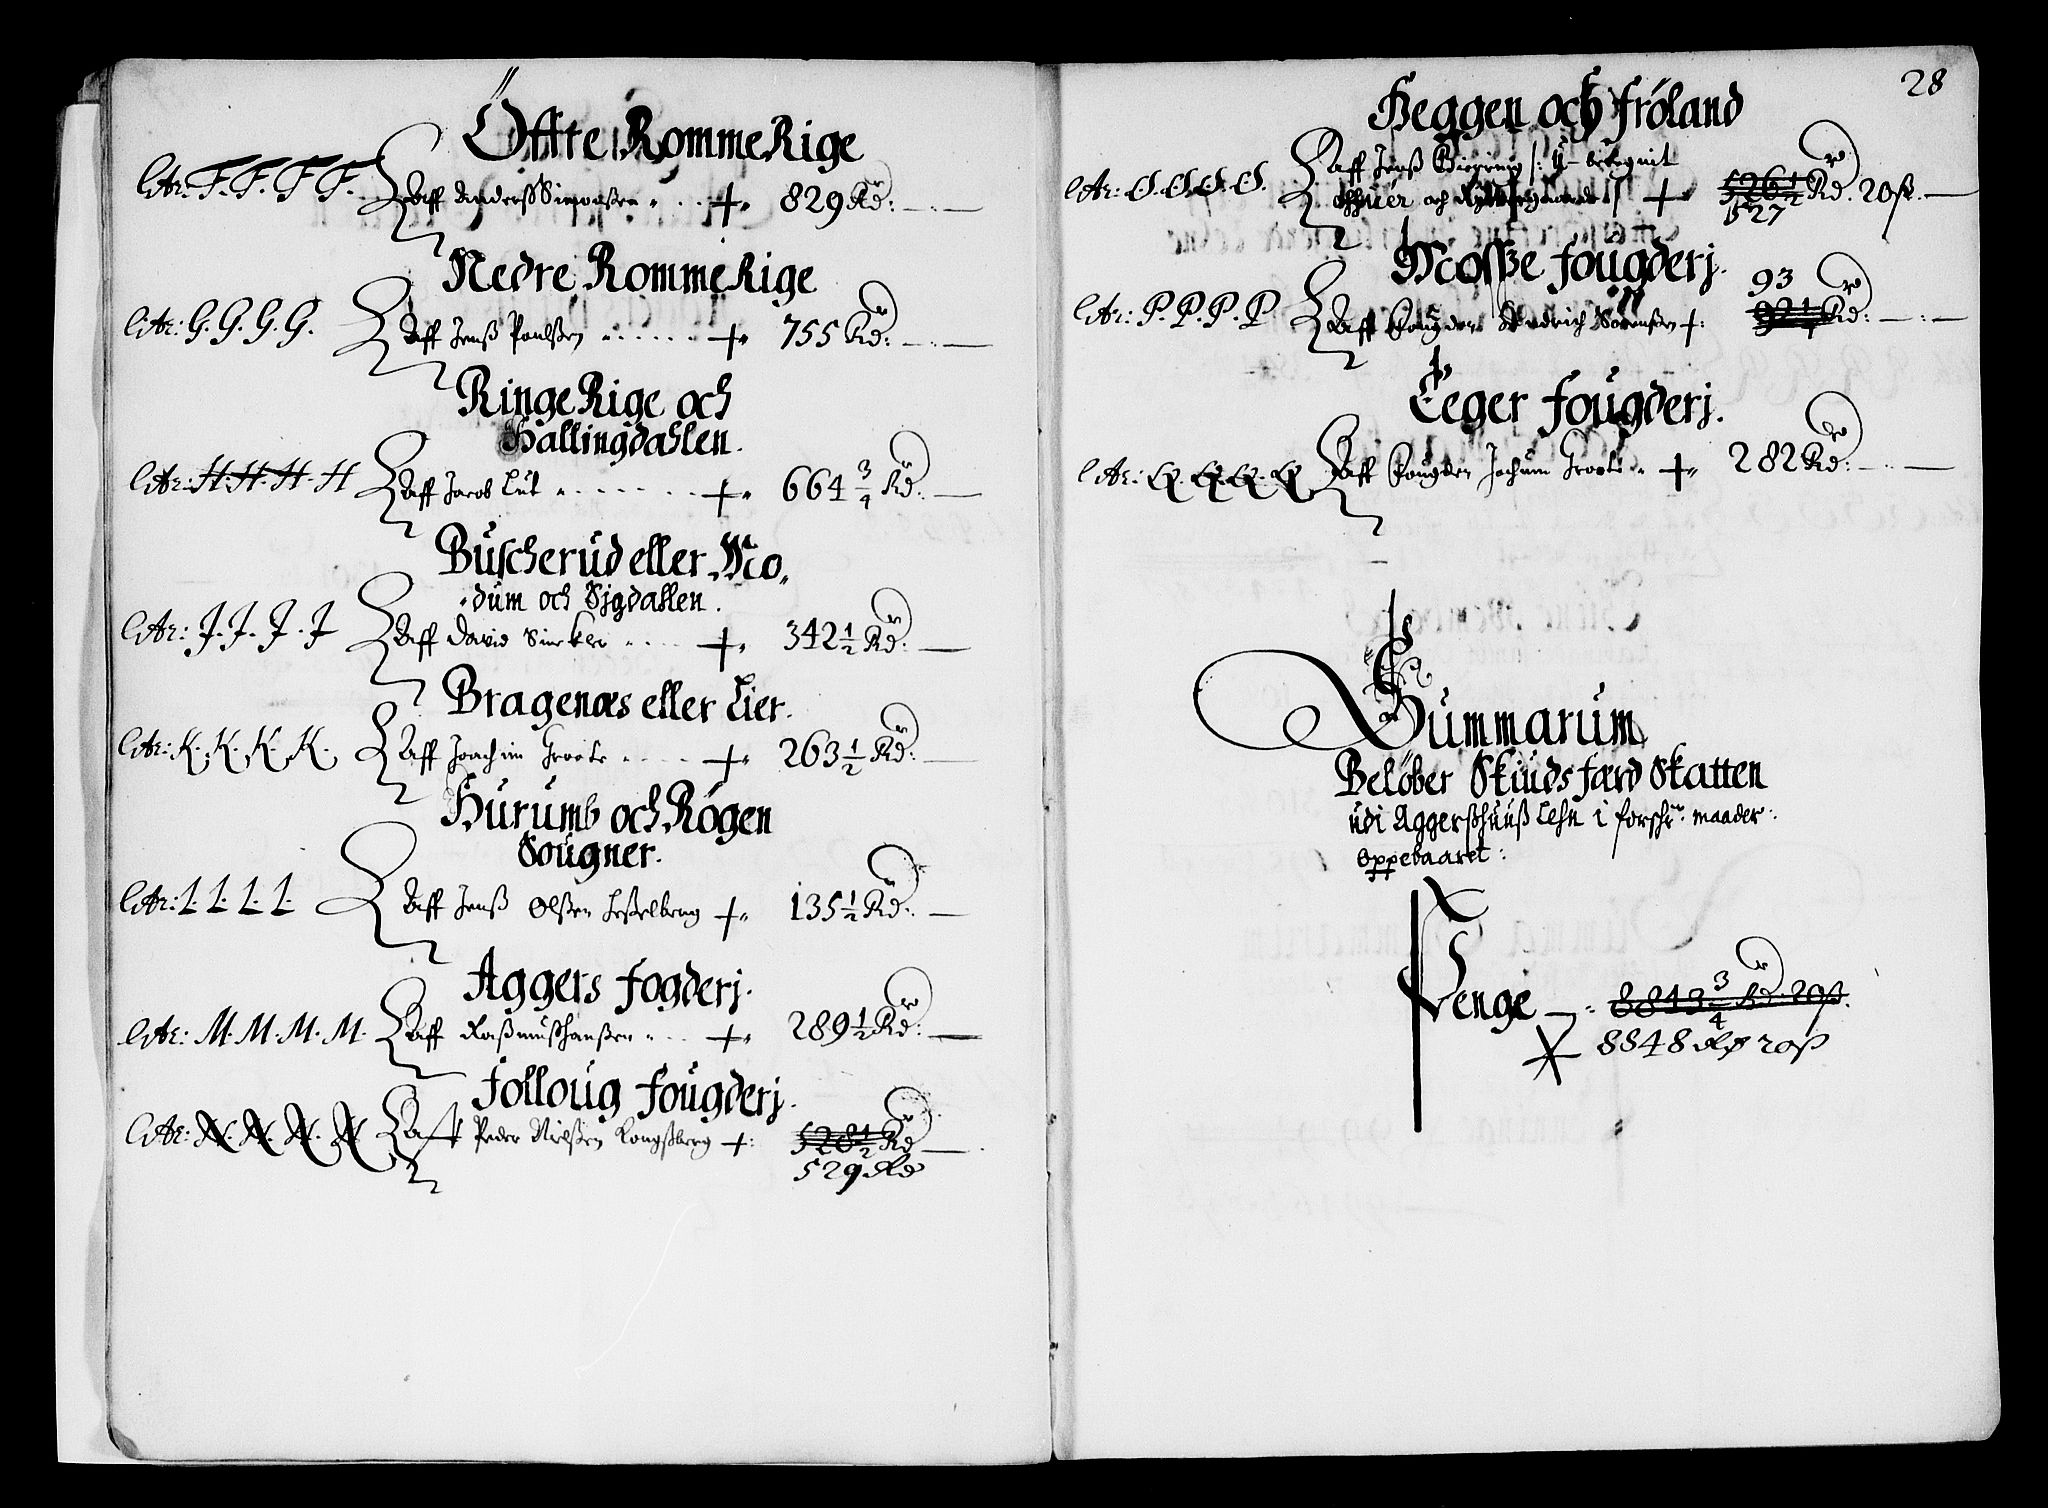 Öffre Romme Rige
Litr: F. F. F F. Aff Anderss Simonßen + 829 Rd:
Nedre Romme Rige
Litr: G. G. G. G. Aff Jenß Poulßen + 755 Rd:
Ringe Rige och
Hallingdahlen.
Litr: H. H. H. H Aff Jacob Lut + 664 3/4 Rd:
Buscherud eller Mo,
dum och Sigdahlen.
Litr: J. J. J. J Aff David Sincklar + 342 1/2 Rd:
Bragenæs eller Lier.
Litr: K. K. K. K. Aff Joachim Groote + 263 1/2 Rd:
Hurumb och Rögen
Sougner.
Litr: L. L. L. L. Aff Jenß Olßen + 135 1/2 Rd:
Aggers fogderj.
Litr: M. M. M. M. Aff Raßmuß hanßen + 289 1/2 Rd:
folloug fougderj.
Litr: N. N. N. N Aff Peder Nielßen Kongßberg +: 528 1/2 Rd
529 Rd
28
Heggen och fröland
Litr: O. O. O. O. Aff Jenß
och + 526 1/2 Rd. 20 ß.
527
Mosße fougderj.
93
Litr: P. P. P. P Aff fougden Sörenßen +: 92 1/2 Rd:
Eeger fougderj.
Litr: Q. Q. Q. Q Aff fougden Jochum Groote + 282 Rd:
Summarum
Belöber Skiuds færd Skatten
udi Aggerßhuuß Lehn i forschr: maader:
oppebaaret:
Penge 8843 3/4 Rd. 20ß.
8848 Rd 20ß